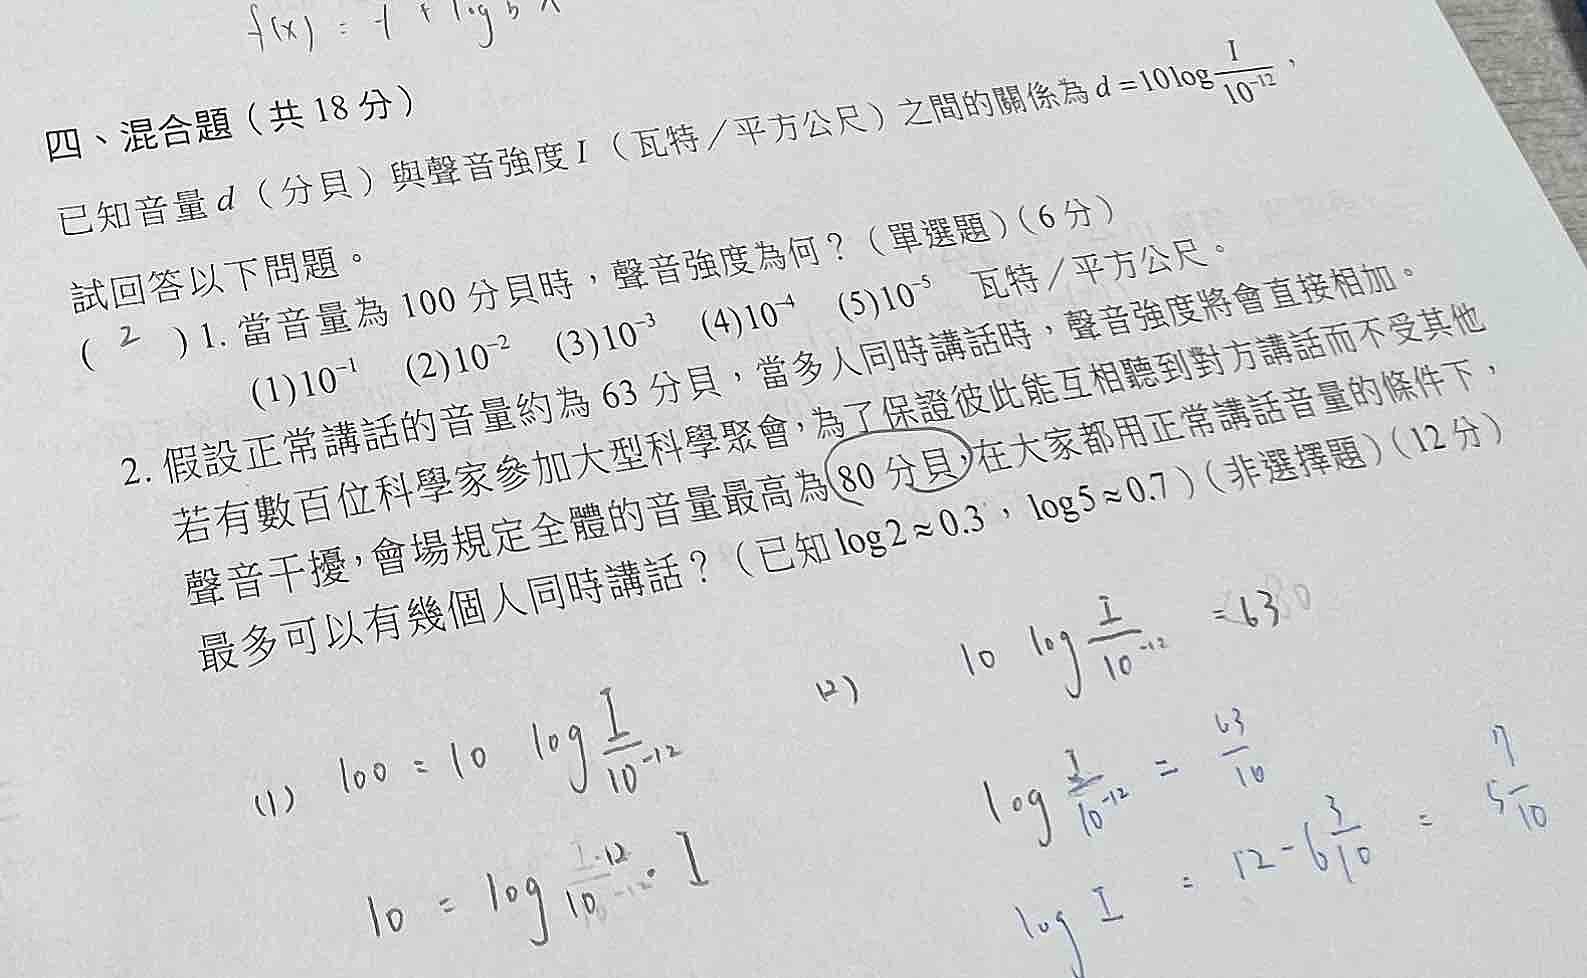 f(x) = -1 + log 5 x
四、混合題（共 18 分）
已知音量 d（分貝）與聲音強度 I（瓦特／平方公尺）之間的關係為 d = 10 log I/10⁻¹²，
試回答以下問題。
( 2 ) 1. 當音量為 100 分貝時，聲音強度為何？（單選題）（6 分）
(1)10⁻¹ (2)10⁻² (3)10⁻³ (4)10⁻⁴ (5)10⁻⁵ 瓦特／平方公尺。
2. 假設正常講話的音量約為 63 分貝，當多人同時講話時，聲音強度將會直接相加。
若有數百位科學家參加大型科學聚會，為了保證彼此能互相聽到對方講話而不受其他
聲音干擾，會場規定全體的音量最高為 80 分貝，在大家都用正常講話音量的條件下，
最多可以有幾個人同時講話？（已知 log2≈0.3，log5≈0.7）（非選擇題）（12 分）
(1) 100 = 10 log I/10⁻¹²
10 = log 10⁻¹² · I
(2) 10 log I/10⁻¹² = 63
log I/10⁻¹² = 63/10
log I = 12 - 6 3/10 = 5 7/10